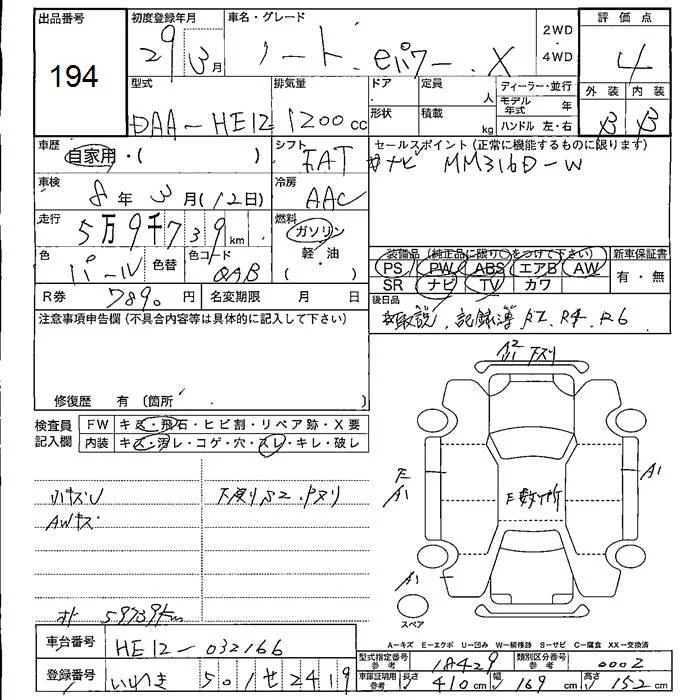 出品番号 初度登録年月 車名・グレード 評価点
194
29年3月 ノート eパワー X
2WD・4WD
4
型式 排気量 ドア 定員 人 ディーラー・並行 外装 内装
DAA-HE12 1200cc 形状 積載 kg モデル年式 年 B B
ハンドル 左・右
車歴 自家用・( ) シフト FAT セールスポイント(正常に機能するものに限ります)
ナビ MM316D-W
車検 8年3月(12日) 冷房 AAC
走行 5万9千739km 燃料 ガソリン・軽・油( )
色 パール 色替 色コード QAB
装備品(純正品に限り○をつけて下さい) 新車保証書
PS PW ABS エアB AW 有・無
SR ナビ TV カワ
R券 7890円 名変期限 月 日
後日品
取説、記録簿 R2、R4、R6
注意事項申告欄(不具合内容等は具体的に記入して下さい)
修復歴 有(箇所 )
検査員記入欄 FW キズ・飛石・ヒビ割・リペア跡・X要
内装 キズ・汚レ・コゲ・穴・スレ・キレ・破レ
小キズU
AWキズ
59739km
A1
E A1
E数ケ所
A1
スペア
A-キズ E-エクボ U-凹み W-補修跡 S-サビ C-腐食 XX-交換済
車台番号 HE12-032166
型式指定番号 参考 18429 類別区分番号 参考 0002
登録番号 いわき 501 せ 2419
車庫証明用 参考 長さ 410cm 幅 169cm 高さ 152cm